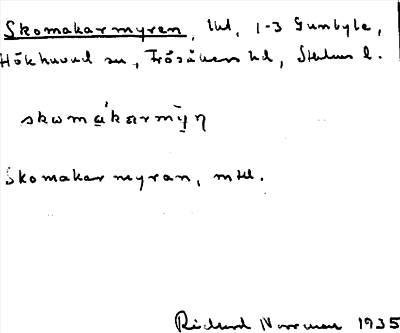 Skomakarmyren, lhl, 1-3 Gunbyle,
Hökhuvud sn, Frösåkers hd, Sthlms l.
skωmákarmy̆ṇ
Skomakarmyran, mtl.
Rickard Norrman 1935